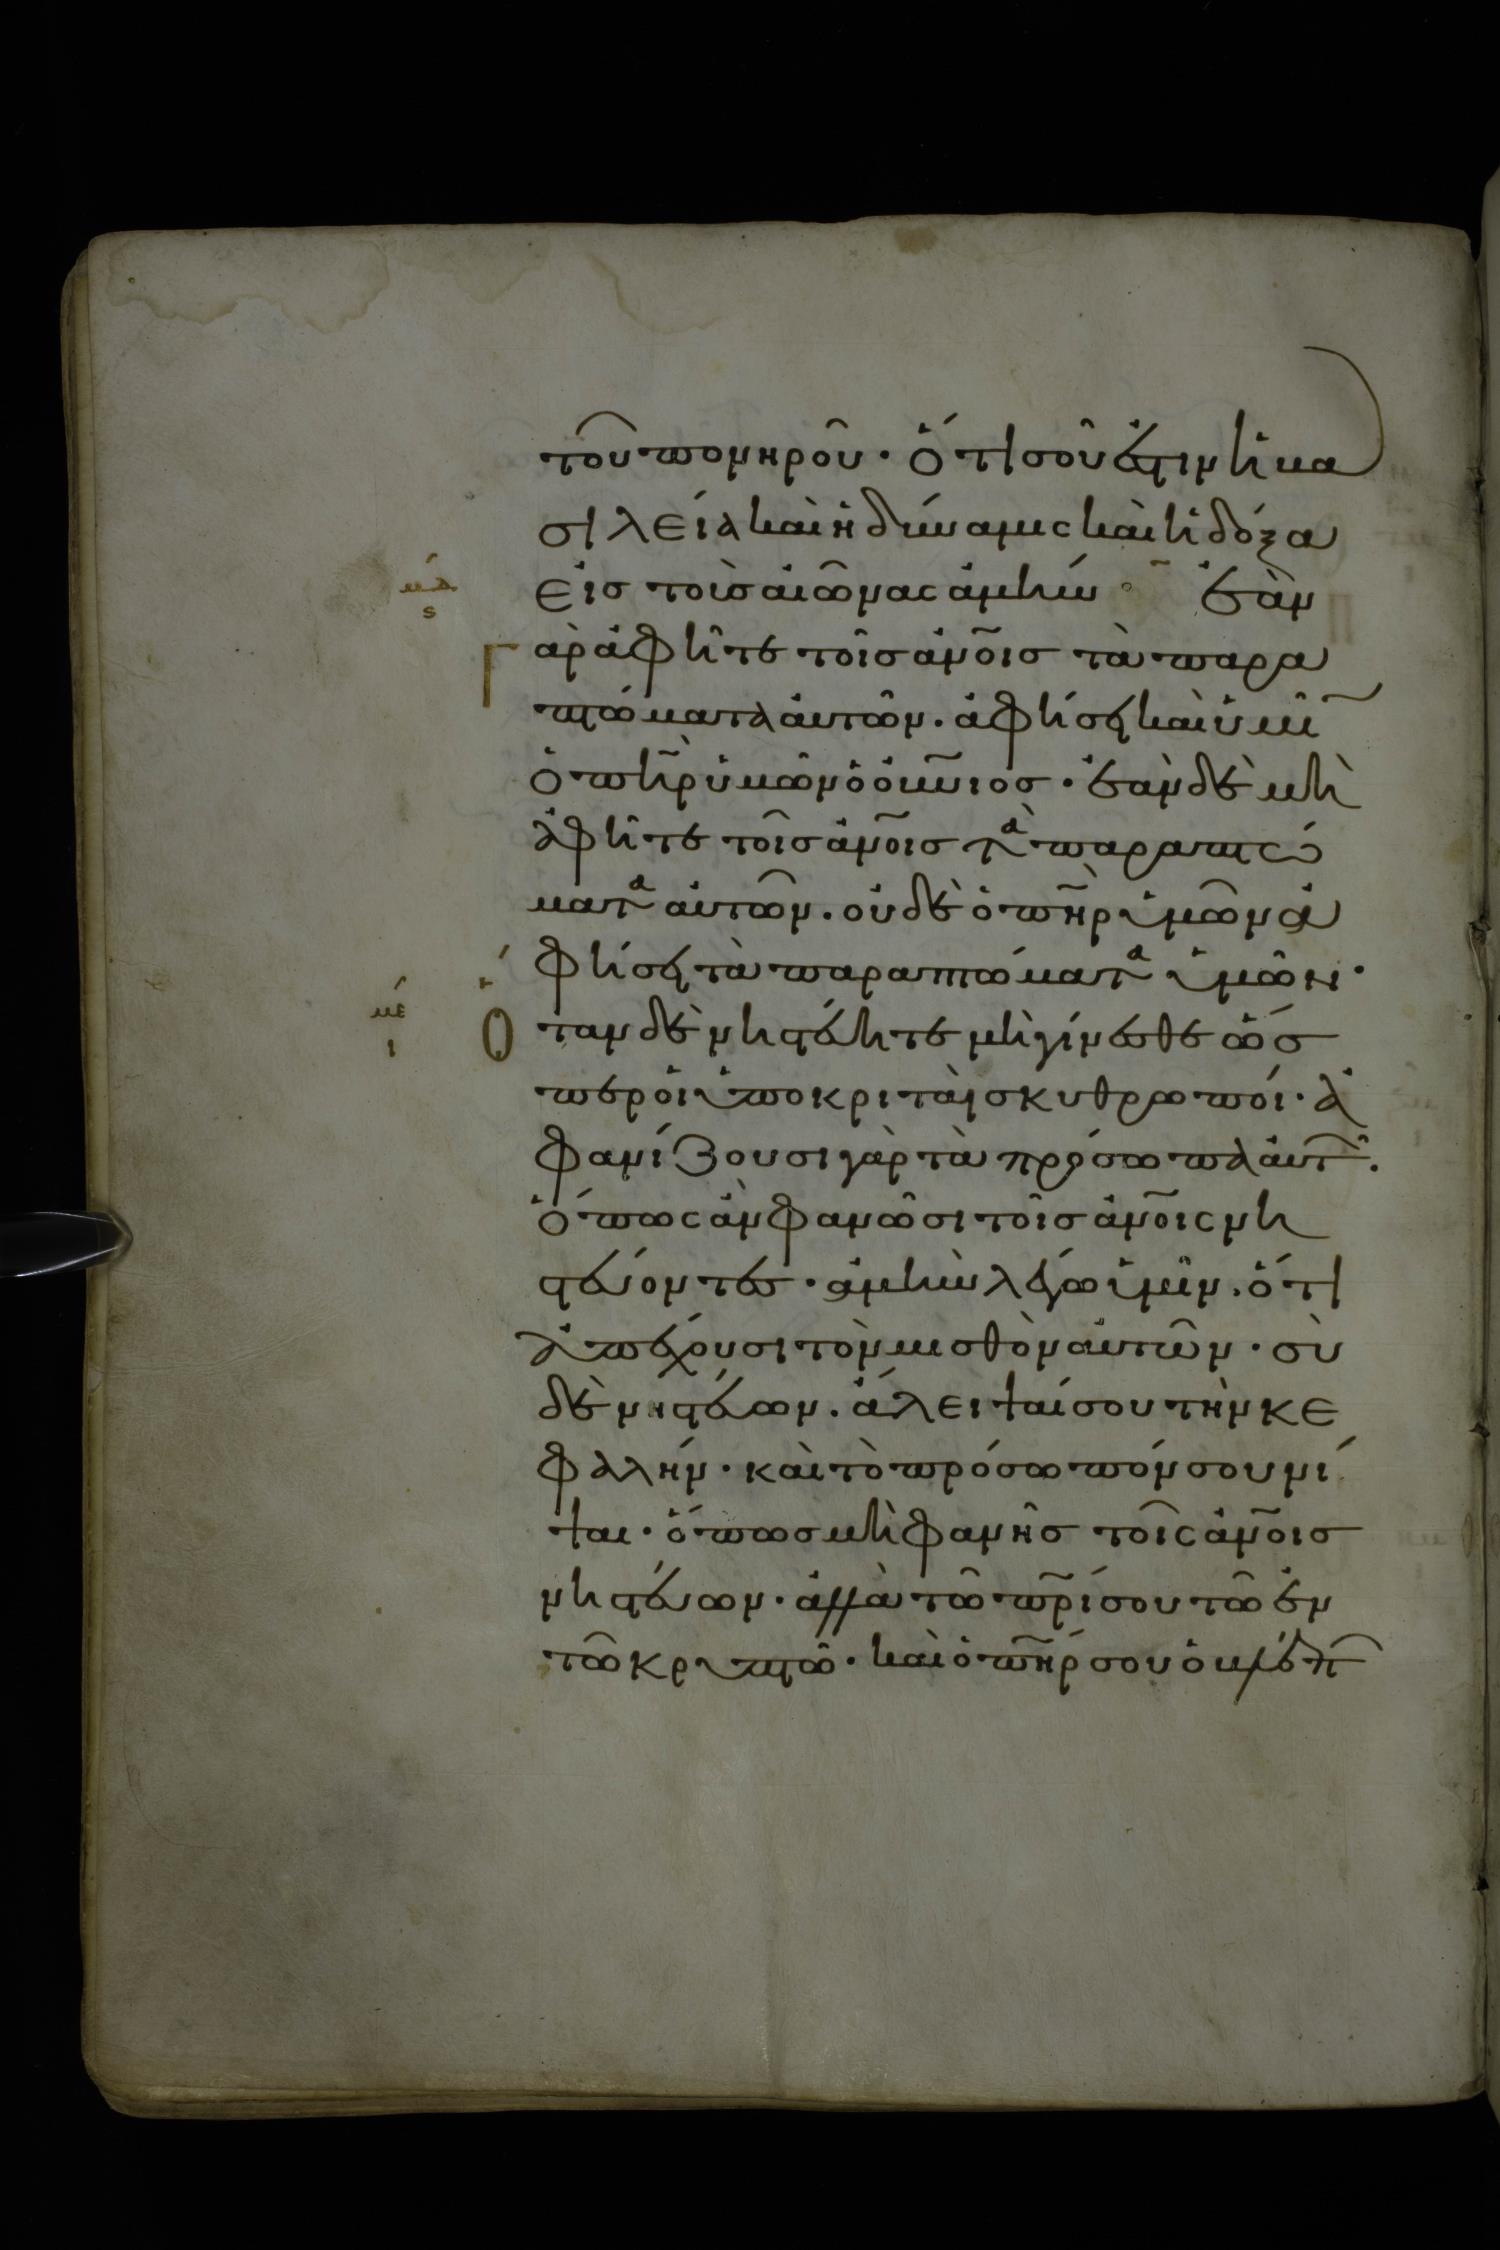 τοῦ πονηροῦ· ὅτι σοῦ ἐστιν ἡ βα
σιλεία καὶ ἡ δύναμις καὶ ἡ δόξα
εἰς τοὺς αἰῶνας ἀμήν ἐὰν
μδ
ϛ
Γ
ὰρ ἀφῆτε τοῖς ἀν̅οις τὰ παρα
πτώματα αὐτῶν. ἀφήσει καὶ ὑμῖ
ὁ π̅ηρ ὑμῶν ὁ οὐν̅ιος· ἐὰν δὲ μὴ
ἀφῆτε τοῖς ἀν̅οις τὰ παραπτώ
ματα αὐτῶν. οὐδὲ ὁ π̅ηρ ὑμῶν ἀ
φήσει τὰ παραπτώματα ὑμῶν·
με
ι
Ὅ
ταν δὲ νηστεύητε μὴ γίνεσθε ὥσ
περ οἱ ὑποκριταὶ σκυθρωποί· ἀ
φανίζουσι γὰρ τὰ πρόσωπα αὐτ̅.
ὅπως ἂν φανῶσι τοῖς ἀν̅οις νη
στεύοντες· ἀμὴν λέγω ὑμῖν. ὅτι
ἀπέχουσι τὸν μισθὸν αὐτῶν· σὺ
δὲ νηστεύων. ἄλειψαί σου τὴν κε
φαλήν· καὶ τὸ πρόσωπόν σου νί
ψαι· ὅπως μὴ φανῇς τοῖς ἀν̅οις
νηστεύων· ἀλλὰ τῶ π̅ρί σου τῶ ἐν
τῶ κρυπτῶ· καὶ ὁ π̅ήρ σου ὁ βλέπ